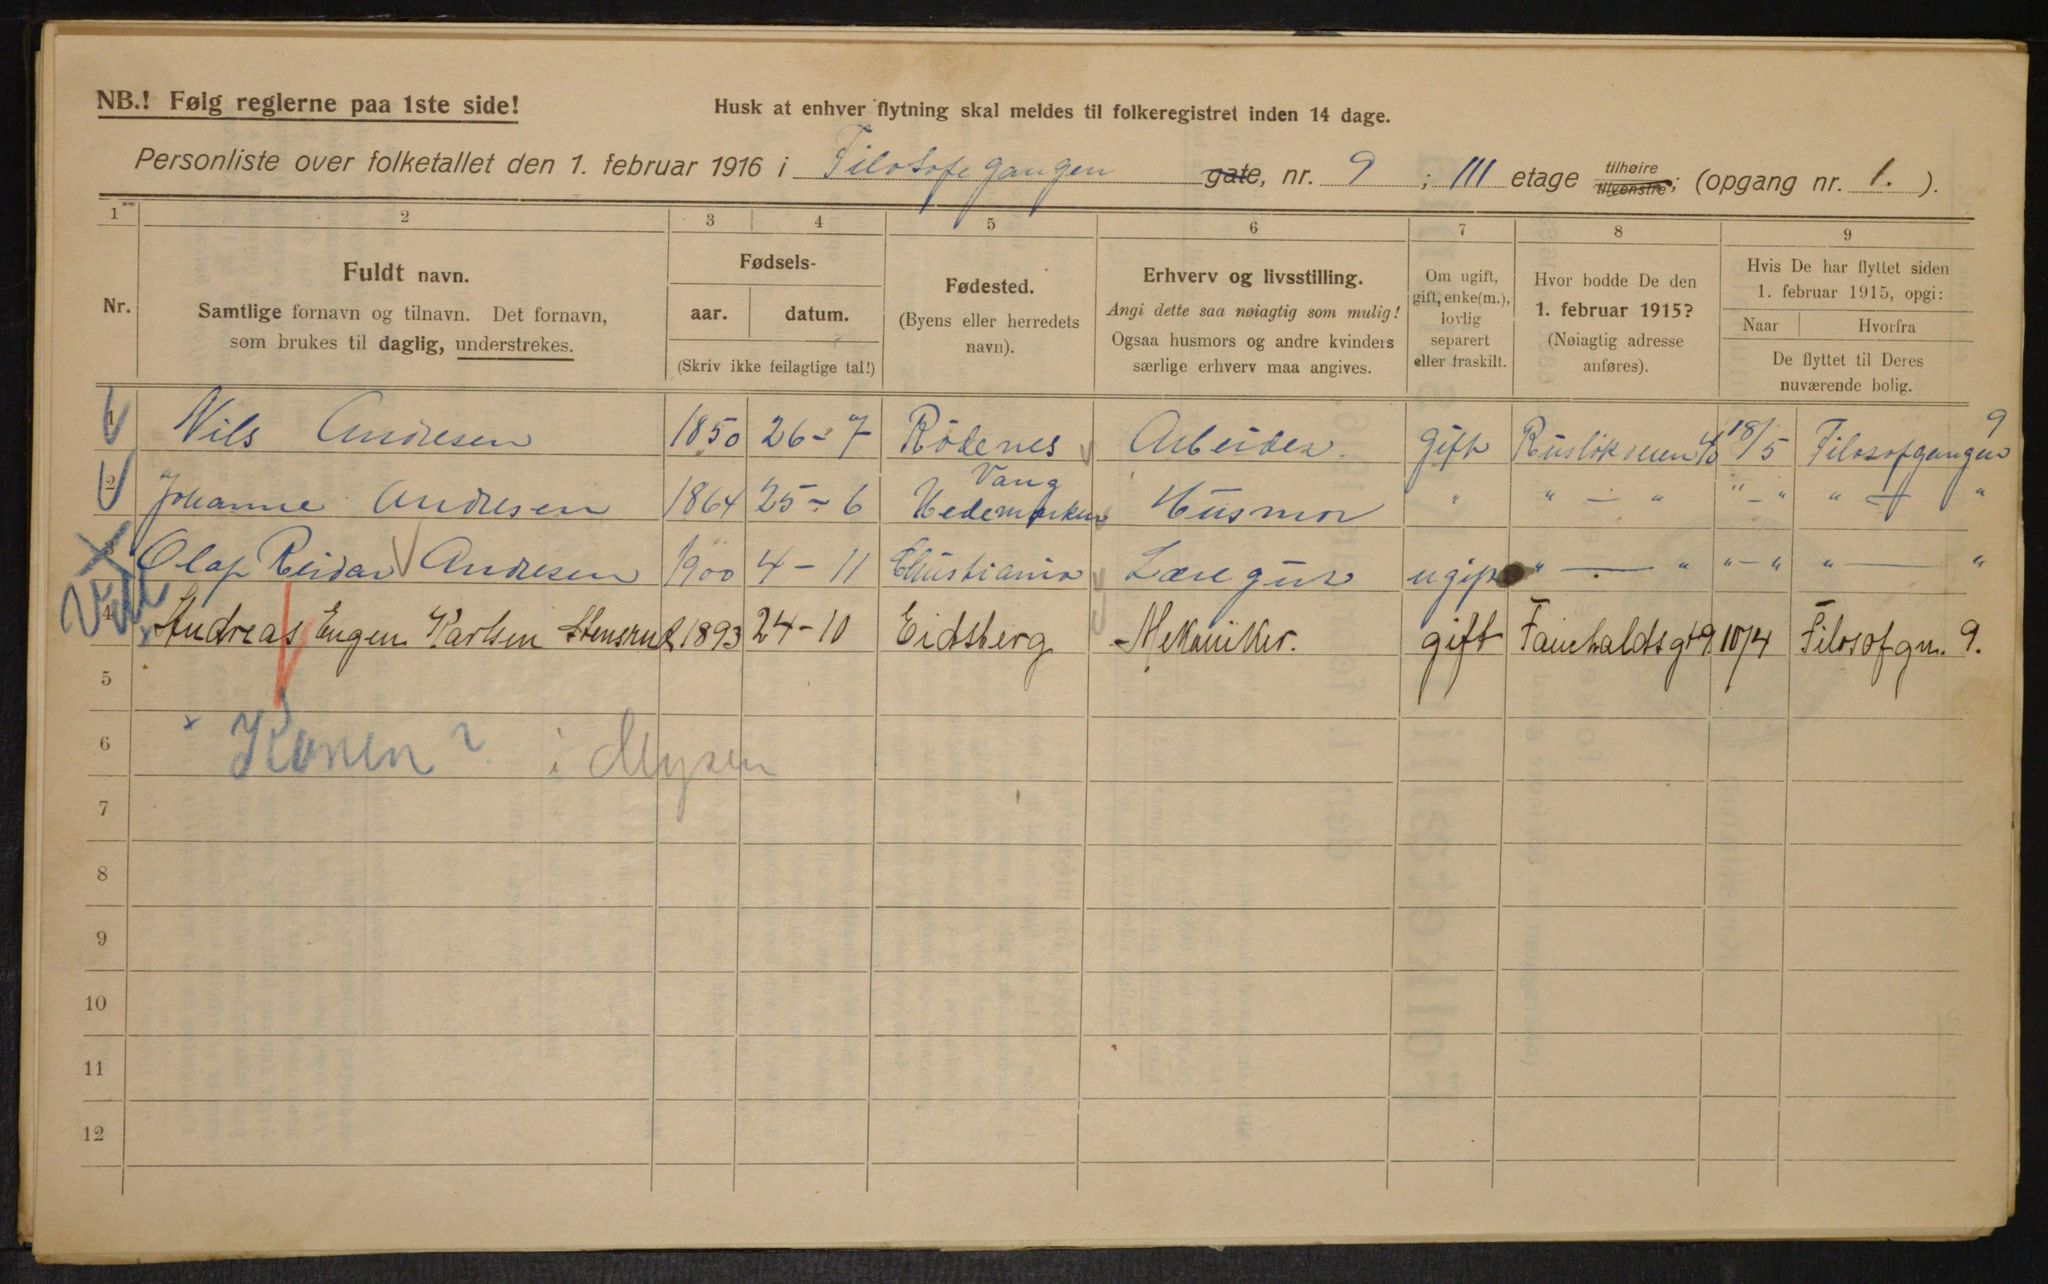 NB.! Følg reglerne paa 1ste side!
Husk at enhver flytning skal meldes til folkeregistret inden 14 dage.
Personliste over folketallet den 1. februar 1916 i Filosofegangen gate, nr. 9 ; III etage tilhøire tilvenstre; (opgang nr. 1. ).
1 2 3 4 5 6 7 8 9
Nr.
Fuldt navn.
Samtlige fornavn og tilnavn. Det fornavn,
som brukes til daglig, understrekes.
Fødsels-
aar. datum.
(Skriv ikke feilagtige tal!)
Fødested.
(Byens eller herredets
navn).
Erhverv og livsstilling.
Angi dette saa nøiagtig som mulig!
Ogsaa husmors og andre kvinders
særlige erhverv maa angives.
Om ugift,
gift, enke(m.),
lovlig
separert
eller fraskilt.
Hvor bodde De den
1. februar 1915?
(Nøiagtig adresse
anføres).
Hvis De har flyttet siden
1. februar 1915, opgi:
Naar Hvorfra
De flyttet til Deres
nuværende bolig.
1 Nils Andresen 1850 26-7 Rödenes Arbeider. Gift 18/5 Filosofgangen 9
2 Johanne Andresen 1864 25-6 Vang Hedemarken Husmor " " — " " - " " — "
3 Olaf Reidar Andresen 1900 4-11 Christiania ugift " — " " - " " — "
4 Andreas Eugen Karlsen Stensrud 1893 24-10 Eidsberg Mekaniker. gift 10/4 Filosofgn. 9.
5
6 × Konen? i Mysen
7
8
9
10
11
12